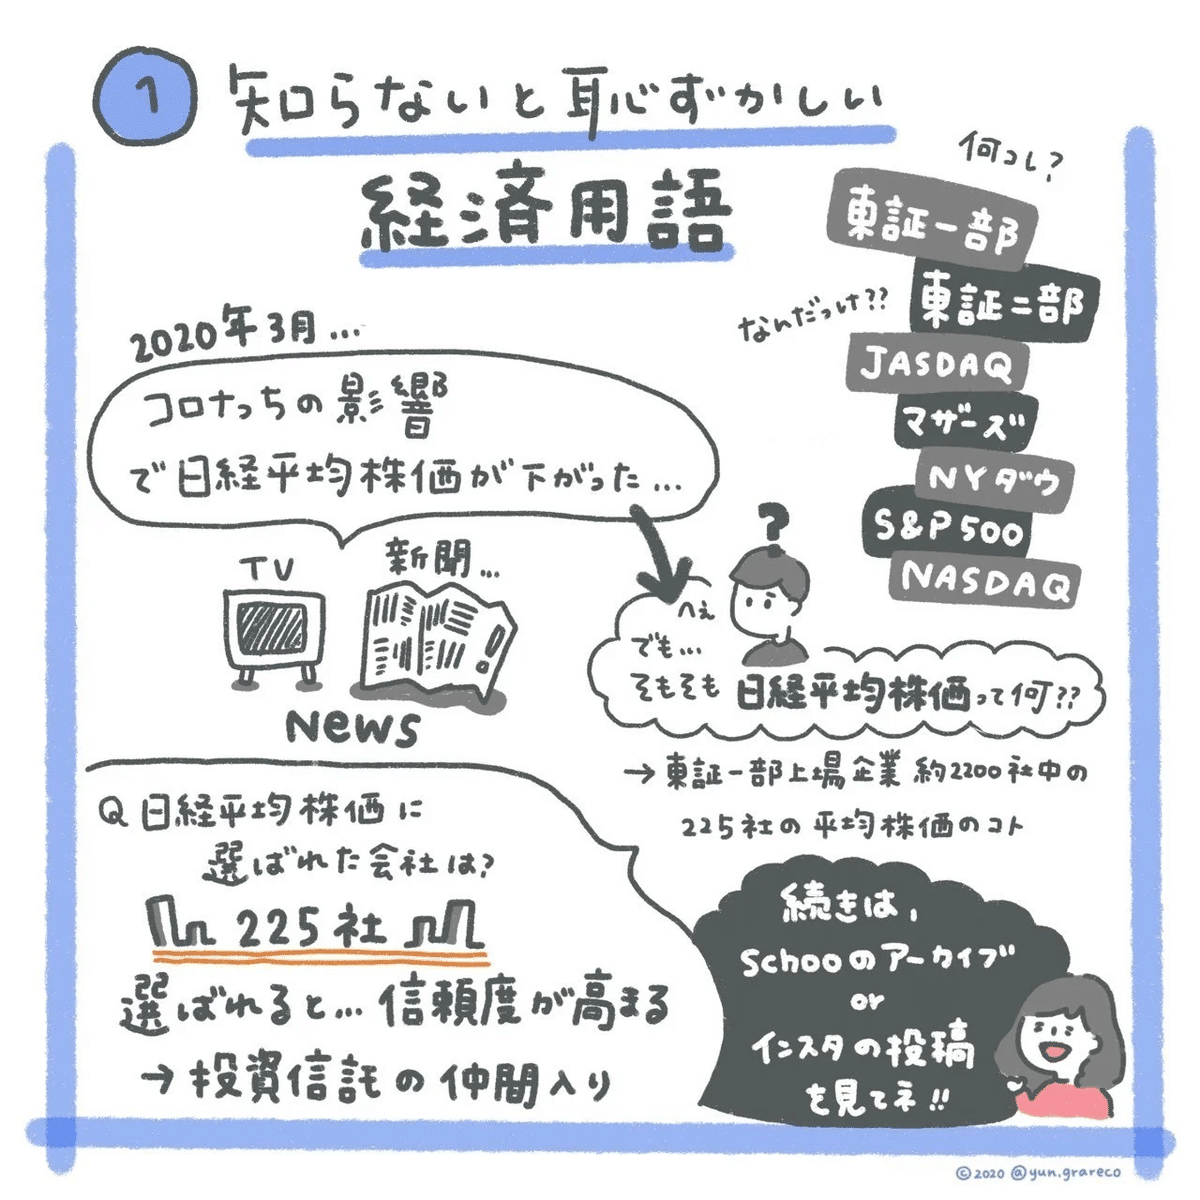 1 知らないと恥ずかしい
経済用語
何コレ?
東証一部
東証二部
なんだっけ??
JASDAQ
マザーズ
NYダウ
S&P500
NASDAQ
2020年3月...
コロナっちの影響
で日経平均株価が下がった...
TV
新聞...
News
?
へぇ
でも...
そもそも日経平均株価って何??
→東証一部上場企業 約2200社中の
225社の平均株価のコト
Q 日経平均株価に
選ばれた会社は?
225社
選ばれると...信頼度が高まる
→投資信託の仲間入り
続きは、
Schooのアーカイブ
or
インスタの投稿
を見てネ!!
©2020 @yun.grareco